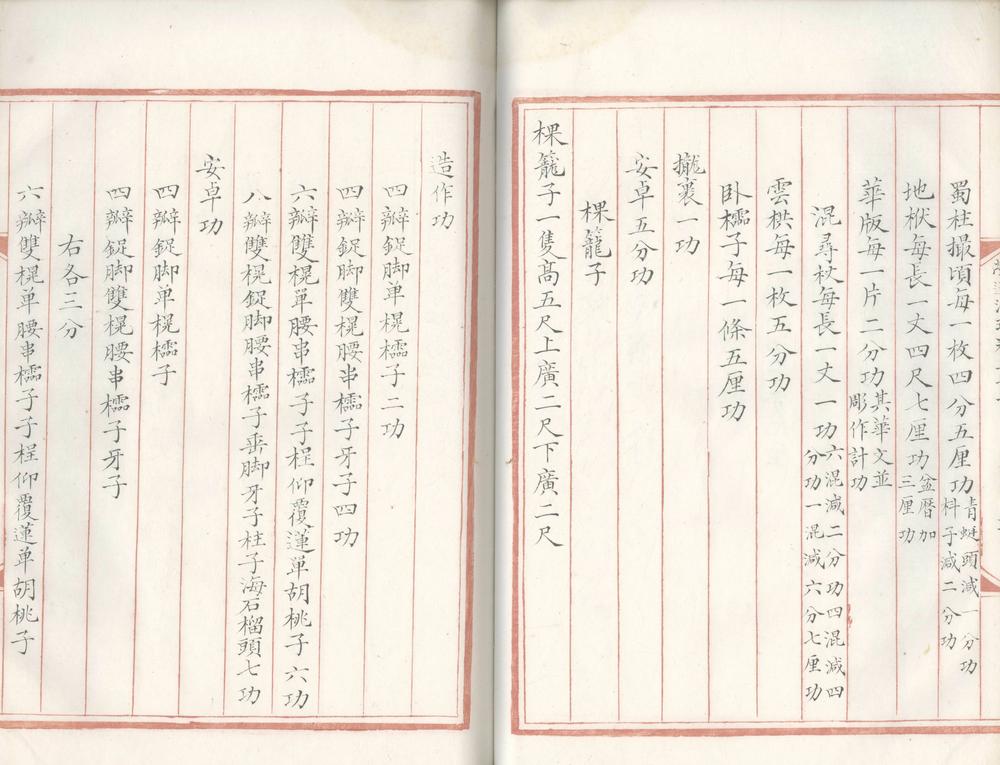 蜀柱撮頃每一枚四分五厘功青蜓頭減一分功枓子減二分功
地栿每長一丈四尺七厘功盆唇加三厘功
華版每一片二分功其華文並彫作計功
混尋杖每長一丈一功六混減二分功四混減四分功一混減六分七厘功
雲栱每一枚五分功
卧櫺子每一條五厘功
攏裹一功
安卓五分功
棵籠子
棵籠子一隻髙五尺上廣二尺下廣二尺
造作功
四瓣鋜脚单榥櫺子二功
四瓣鋜脚雙榥腰串櫺子牙子四功
六瓣雙榥单腰串櫺子子桯仰覆蓮單胡桃子六功
八瓣雙榥鋜脚腰串櫺子垂脚牙子柱子海石榴頭七功
安卓功
四瓣鋜脚单榥櫺子
四瓣鋜脚雙榥腰串櫺子牙子
右各三分
六瓣雙榥单腰串櫺子子桯仰覆蓮单胡桃子